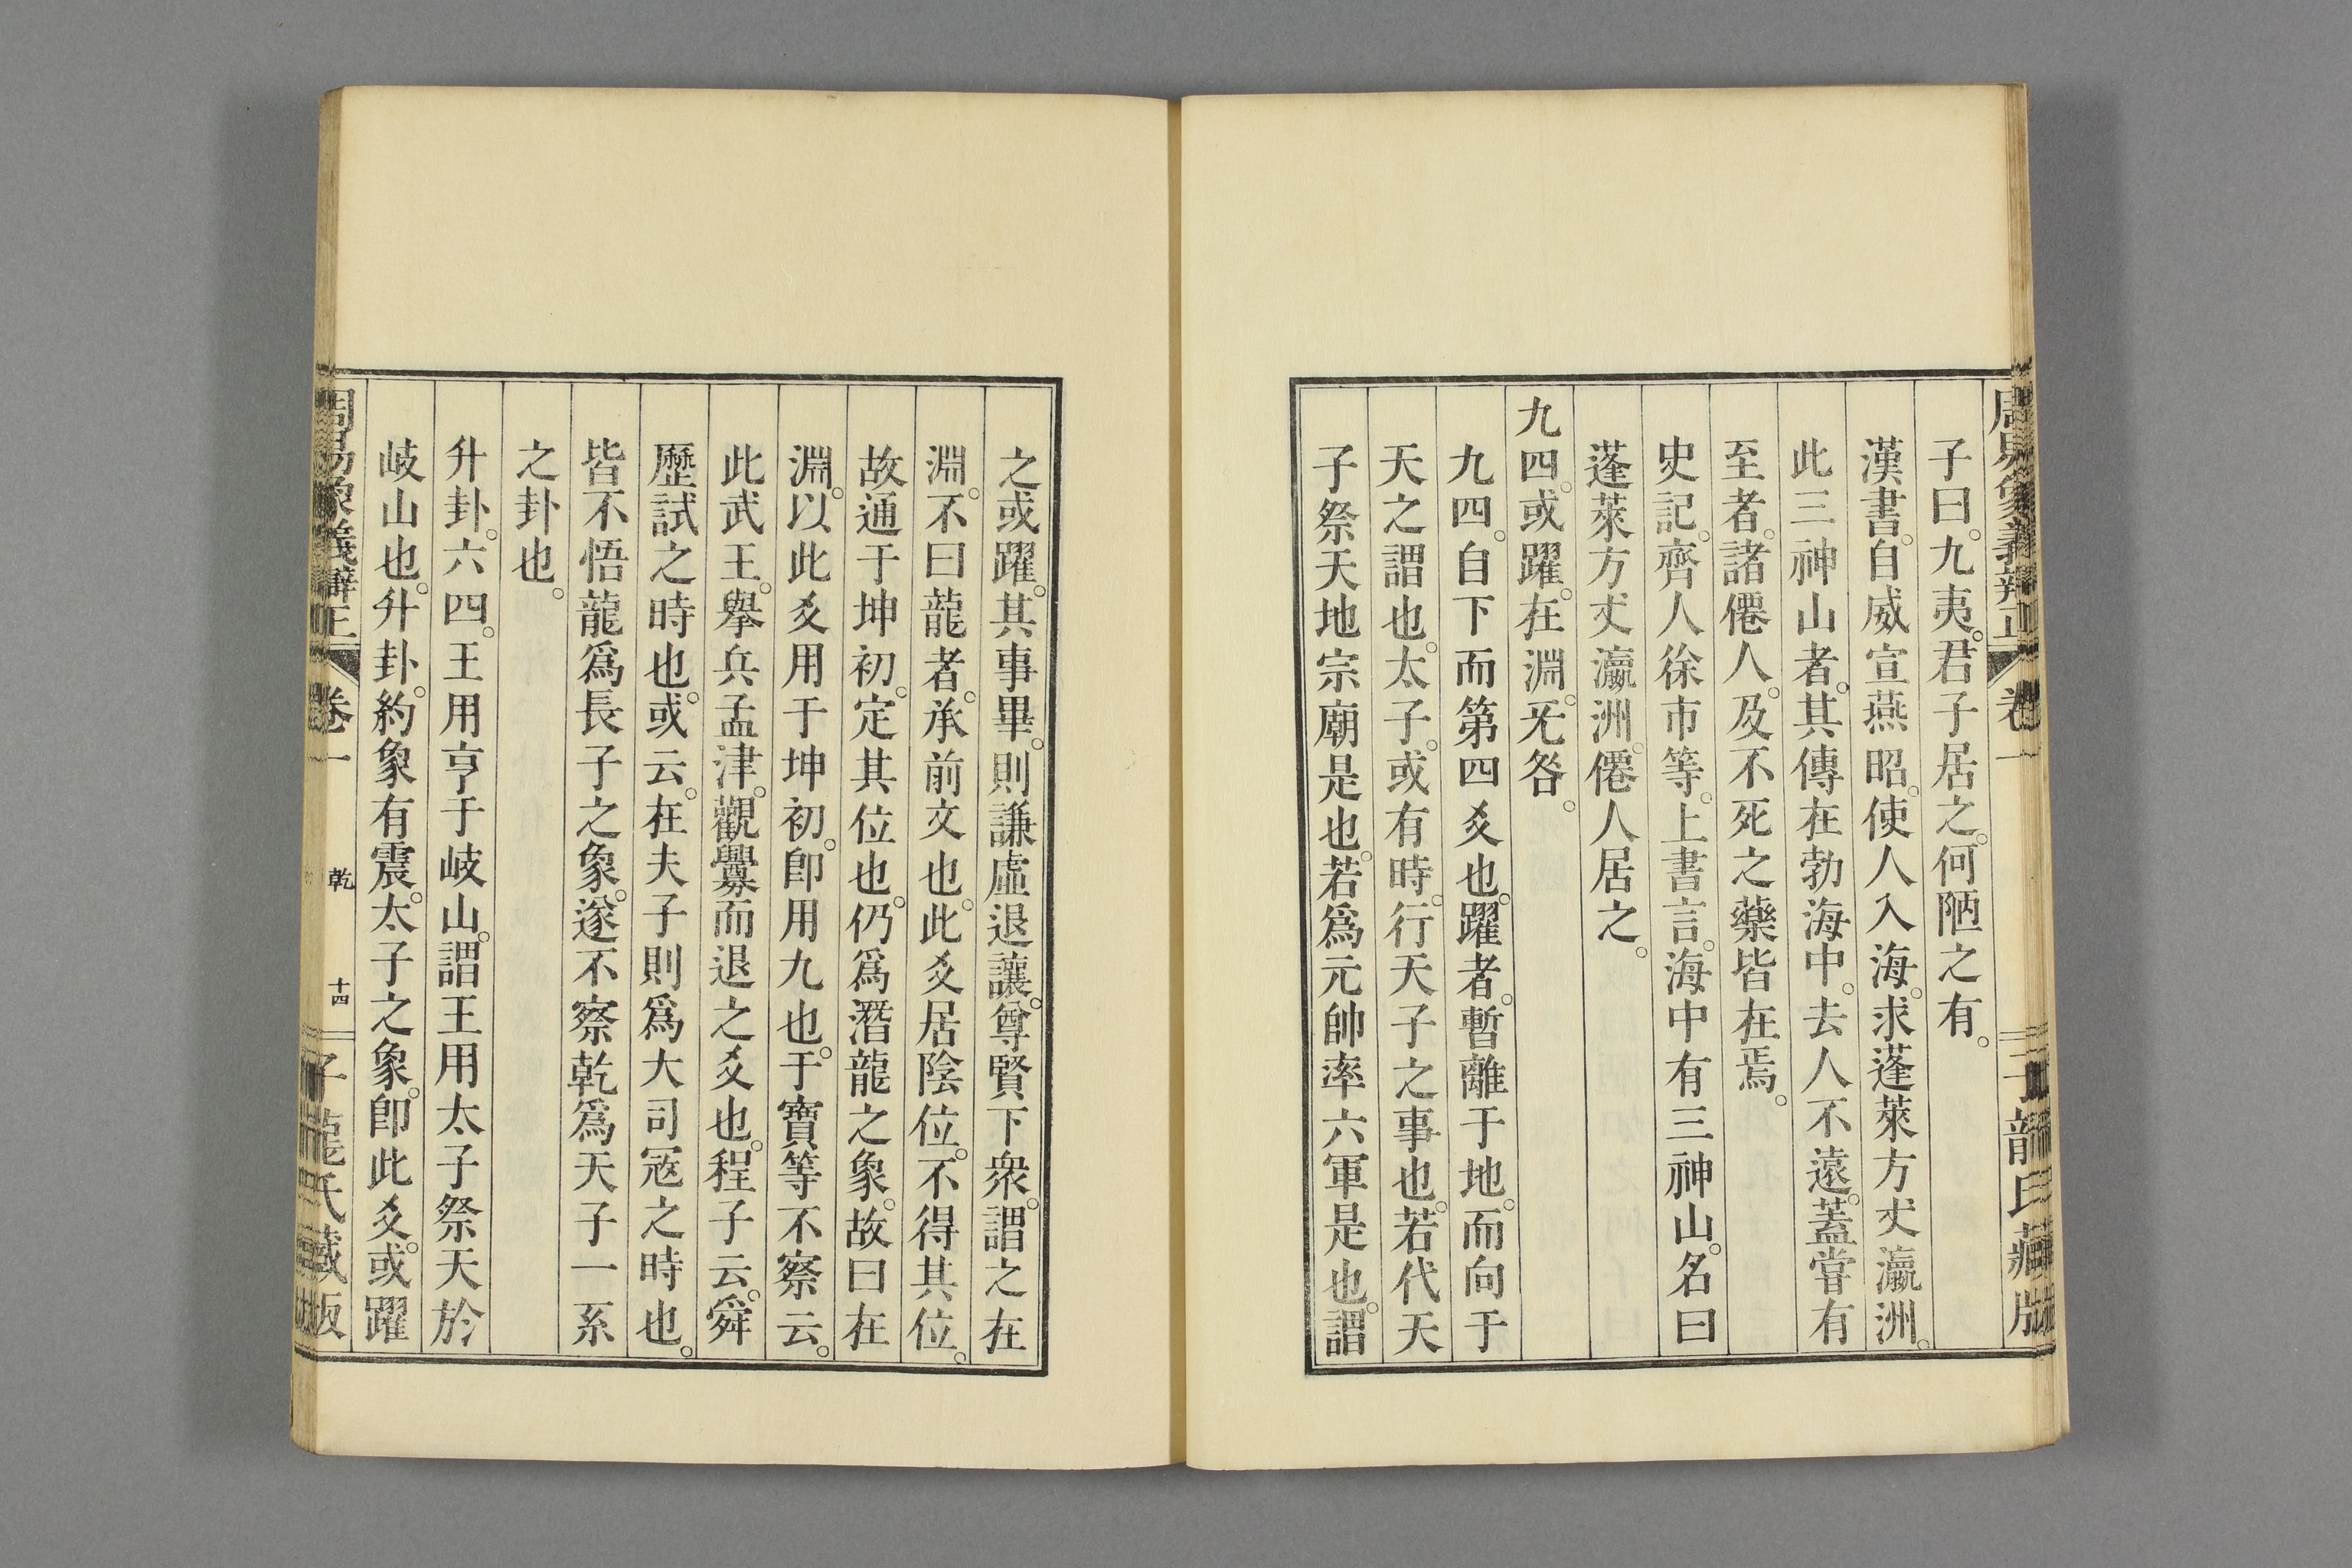 周易象義辯正 卷一
子龍氏藏版
子曰。九夷。君子居之。何陋之有。
漢書。自威宣燕昭。使人入海。求蓬萊方丈瀛洲。
此三神山者。其傳在勃海中。去人不遠。蓋嘗有
至者。諸僊人。及不死之藥皆在焉。
史記。齊人徐巿等。上書言。海中有三神山。名曰
蓬萊方丈瀛洲。僊人居之。
九四。或躍。在淵。旡咎。
九四。自下而第四爻也。躍者。暫離于地。而向于
天之謂也。太子。或有時。行天子之事也。若代天
子祭天地宗廟是也。若爲元帥率六軍是也。謂
之或躍。其事畢。則謙虛退讓。尊賢下衆。謂之在
淵。不曰龍者。承前文也。此爻居陰位。不得其位。
故通于坤初。定其位也。仍爲潛龍之象。故曰在
淵。以此爻用于坤初。卽用九也。于寶等不察云。
此武王。擧兵孟津。觀釁而退之爻也。程子云。舜
歷試之時也。或云。在夫子則爲大司寇之時也。
皆不悟龍爲長子之象。遂不察乾爲天子一系
之卦也。
升卦。六四。王用亨于岐山。謂王用太子祭天於
岐山也。升卦。約象有震。太子之象。卽此爻。或躍
周易象義辯正 卷一 乾 十四 子龍氏藏版